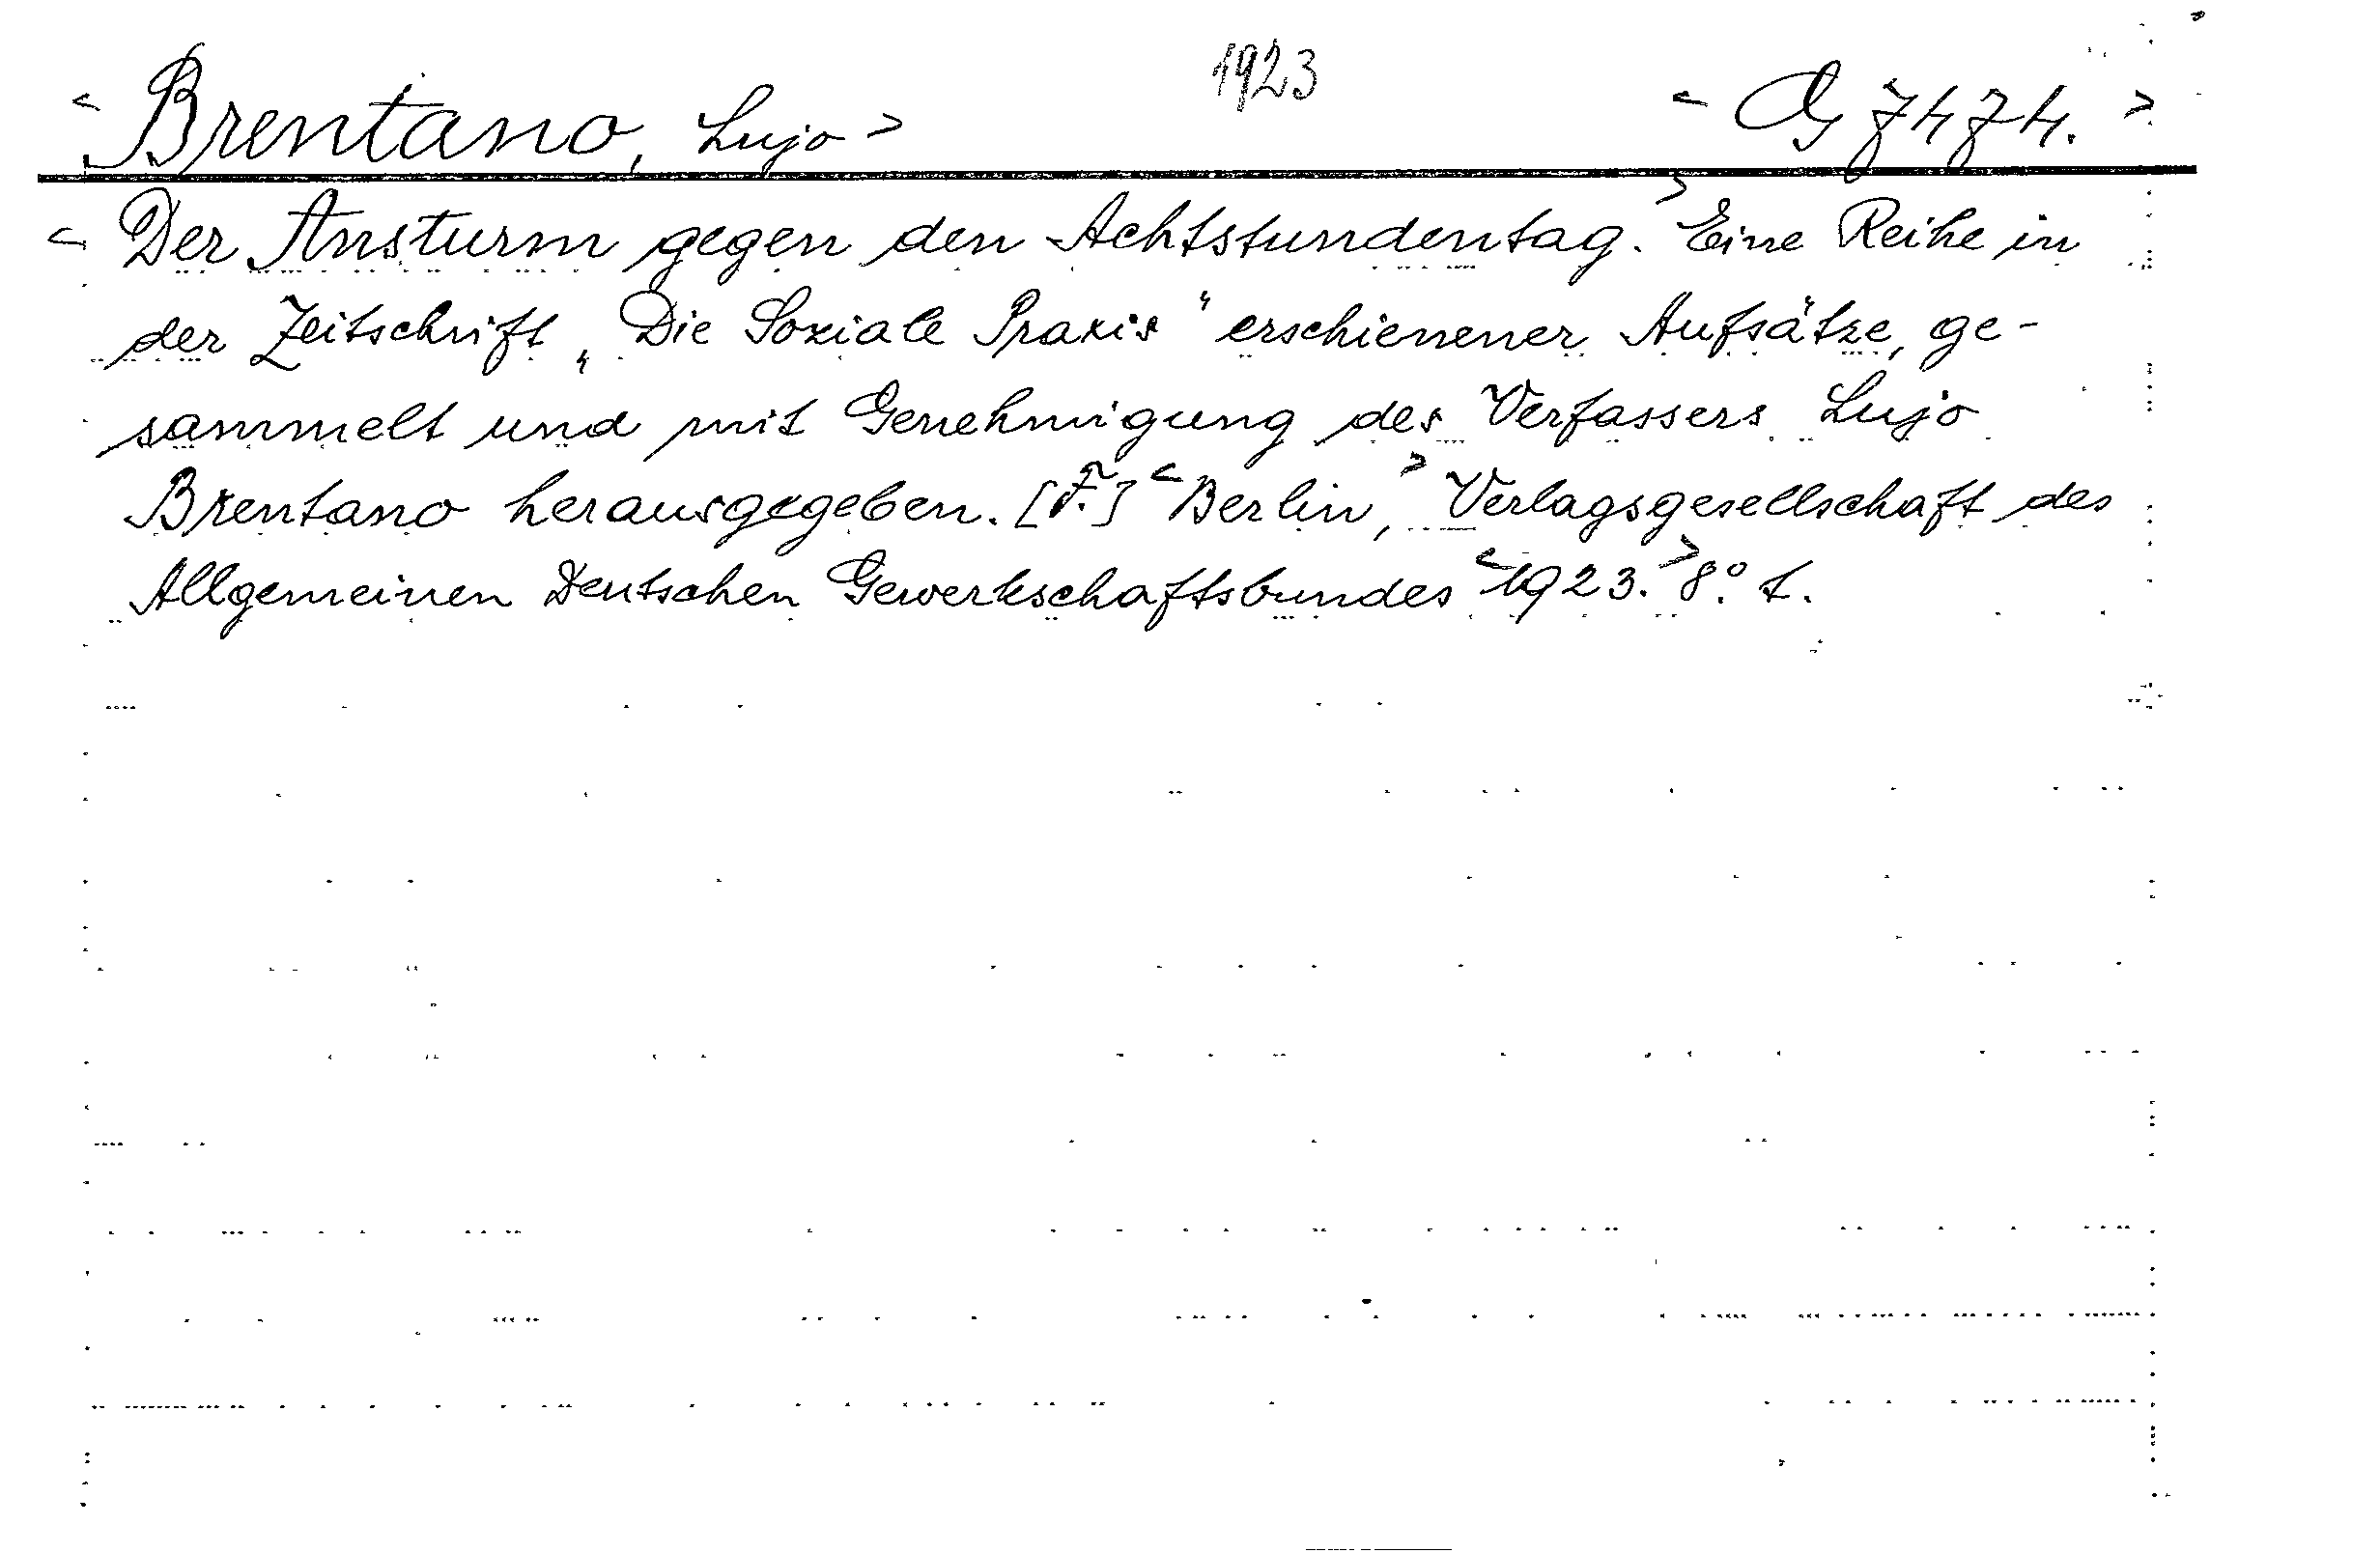 < Brentano, Lujo > 1923 < G 7474. >
< Der Ansturm gegen den Achtstundentag. > Eine Reihe in
der Zeitschrift „Die Soziale Praxis“ erschienener Aufsätze, ge-
sammelt und mit Genehmigung des Verfassers Lujo
Brentano herausgegeben. [F.] < Berlin, > Verlagsgesellschaft des
Allgemeinen Deutschen Gewerkschaftsbundes < 1923. > 8°.